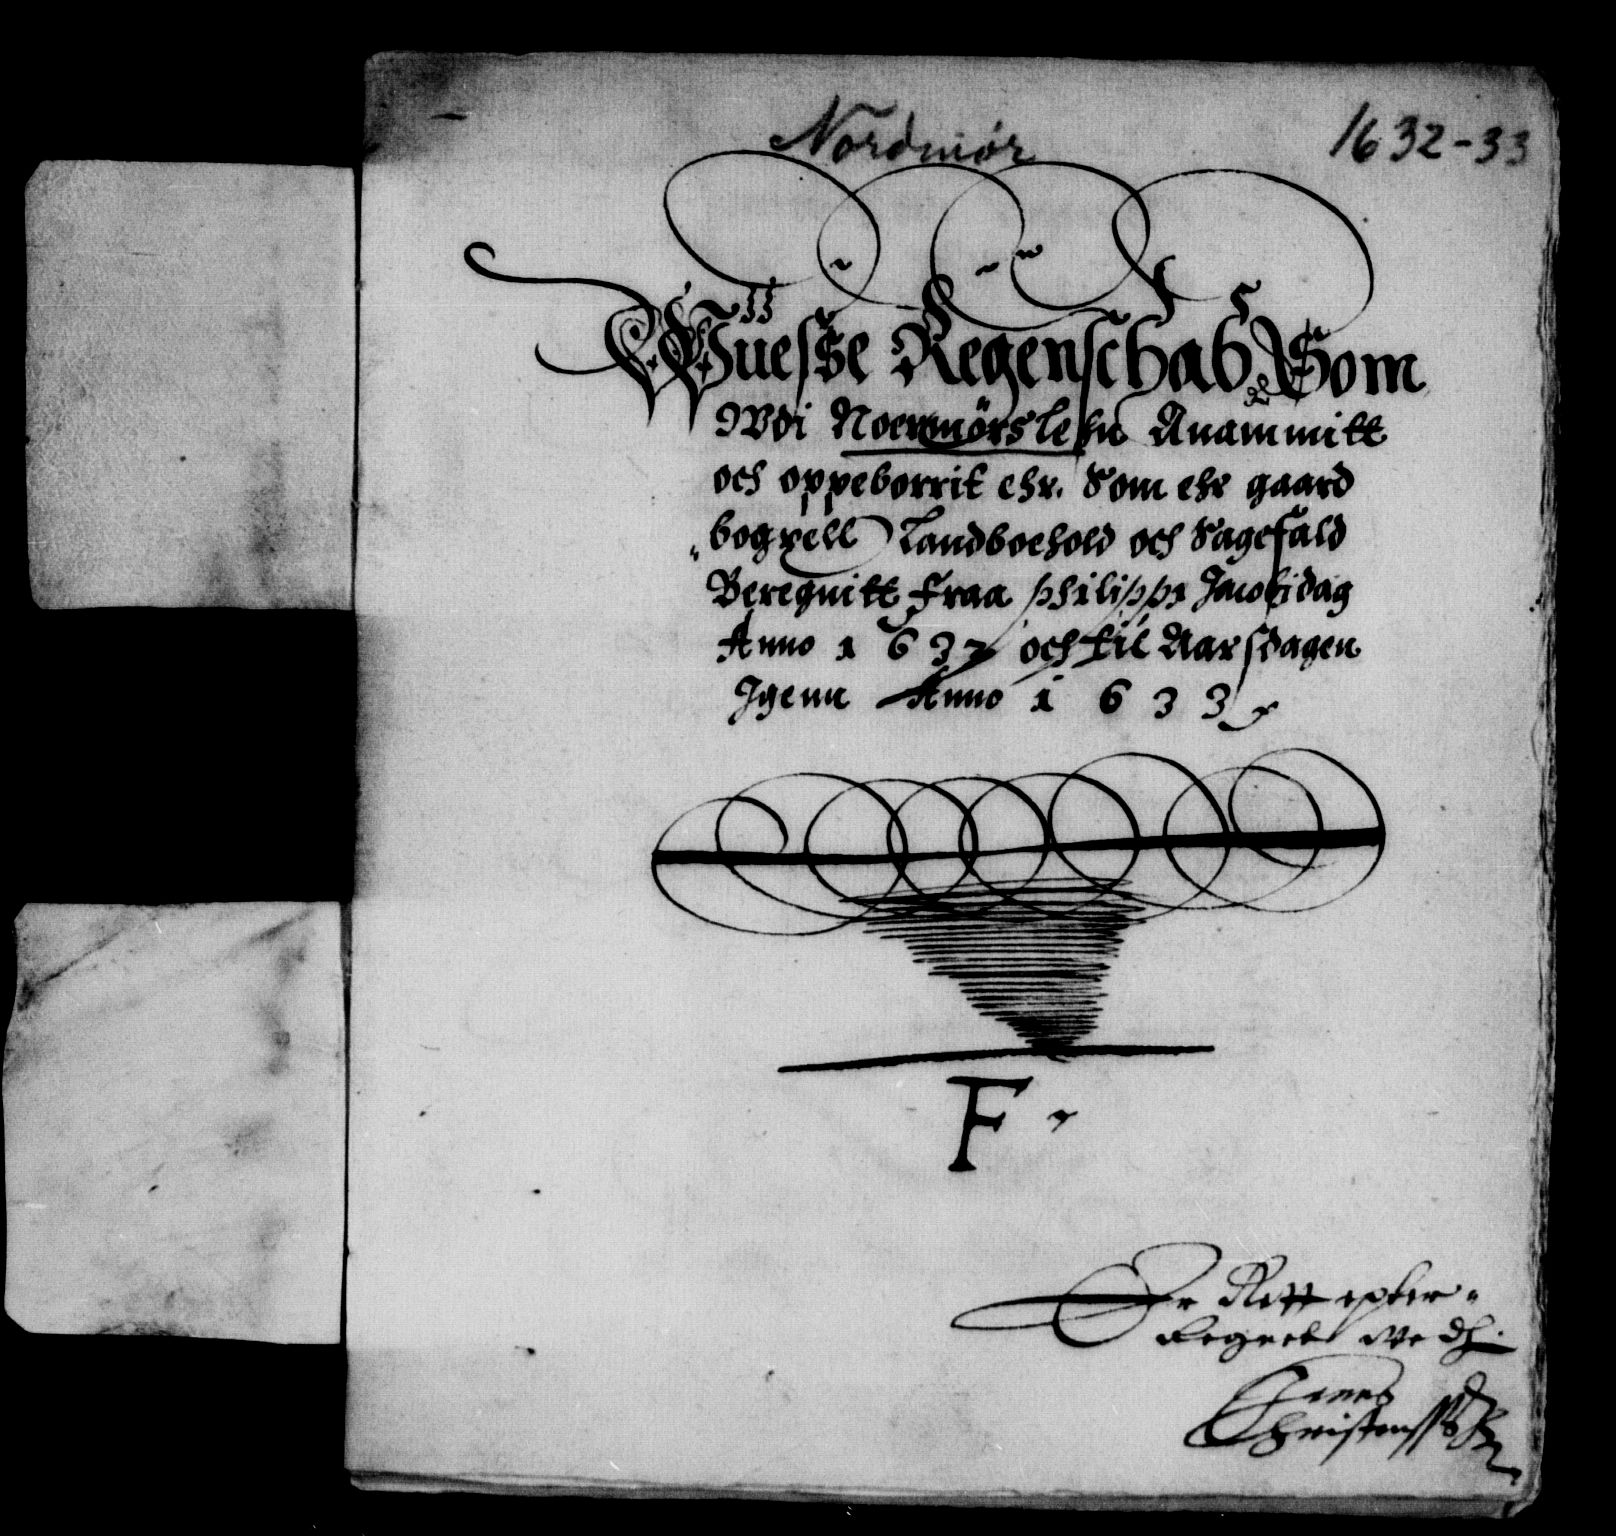 Nordmør 1632-33
Wüesse Regenschab Som
Wdi Noermörs lehn Anammitt
och oppeborrit ehr. Som ehr gaard
bogxell Landboehold och Sagefald
Beregnitt Fraa philippi Jacobi dag
Anno 1632 och til Aarsdagen
Igenn Anno 1633
F
Er Rett epter
Regnet
Christenss